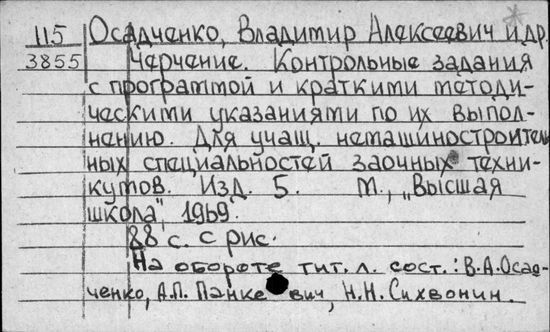 115 Осадченко, Владимир Алексеевич и др.
3855 Черчение. Контрольные задания
с программой и краткими методи-
ческими указаниями по их выпол-
нению. Для учащ. немашиностроитель
ных специальностей заочных техни-
кумов. Изд. 5. М., „Высшая
школа", 1969.
88 с. с рис.
На обороте тит. л. сост.: В.А.Осад-
ченко, А.П. Панкевич, Н.Н. Сихвонин.